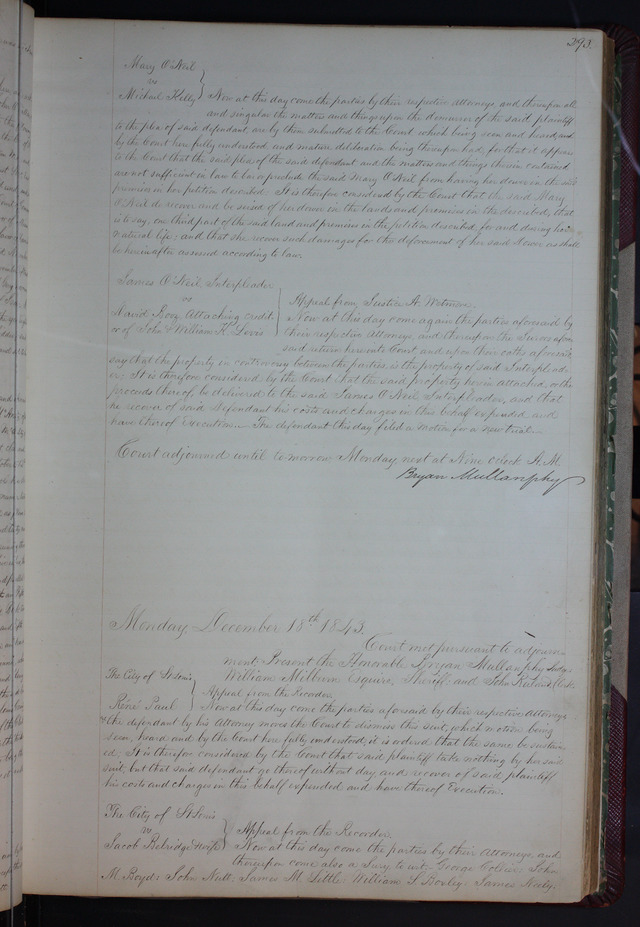 293.
Mary O'Neil
vs
Michael Kelly } Now at this day come the parties by their respective Attorneys, and thereupon all
and singular the matters and things upon the demurrer of the said plaintiff
to the plea of said defendant, are by them submitted to the Court which being seen and heard, and
by the Court here fully understood, and mature deliberation being thereupon had, for that it appears
to the Court that the said plea of the said defendant and the matters and things therein contained
are not sufficient in law to bar or preclude the said Mary O'Neil from having her dower in the said
premises in her petition described. It is therefore considered by the Court that the said Mary
O'Neil do recover and be seised of her dower in the lands and premises in the described, that
is to say, one third part of the said land and premises in the petition described for and during her
natural life; and that she recover such damages for the deforcement of her said dower as shall
be hereinafter assessed according to law.
James O'Neil Interpleader
vs
David Attaching credit
or of John & William K. Lewis } Appeal from Justice A. Wetmore.
Now at this day come again the parties aforesaid by
their respective Attorneys, and thereupon the Jurors afore
said return here into Court and upon their oaths aforesaid
say that the property in controversy between the parties is the property of said Interplead-
er: It is therefore considered by the Court that the said property herein attached or the
proceeds thereof, be delivered to the said James O'Neil Interpleader, and that
he recover of said defendant his costs and charges in this behalf expended and
have thereof Execution. The defendant this day filed a motion for a new trial.
Court adjourned until to morrow Monday next at Nine o'clock A.M.
Bryan Mullanphy
Monday December 18th 1843.
Court met pursuant to adjourn-
ment; Present the Honorable Bryan Mullanphy Judge
William Milburn Esquire, Sheriff; and John Clerk.
The City of St Louis
vs
René Paul } Appeal from the Recorder,
Now at this day come the parties aforesaid by their respective Attorneys
the defendant by his Attorney moves the Court to dismiss this suit, which motion being
seen, heard and by the Court here fully understood, it is ordered that the same be sustain
ed, It is therefore considered by the Court that said plaintiff take nothing by her said
suit, but that said defendant go thereof without day and recover of said plaintiff
his costs and charges in this behalf expended and have thereof Execution.
The City of St Louis
vs
Jacob Belridge & wife } Appeal from the Recorder.
Now at this day come the parties by their Attorneys, and
thereupon come also a Jury to wit; George Collier; John
M. Boyd; John Nutt; James M. Little; William S. James Neely;